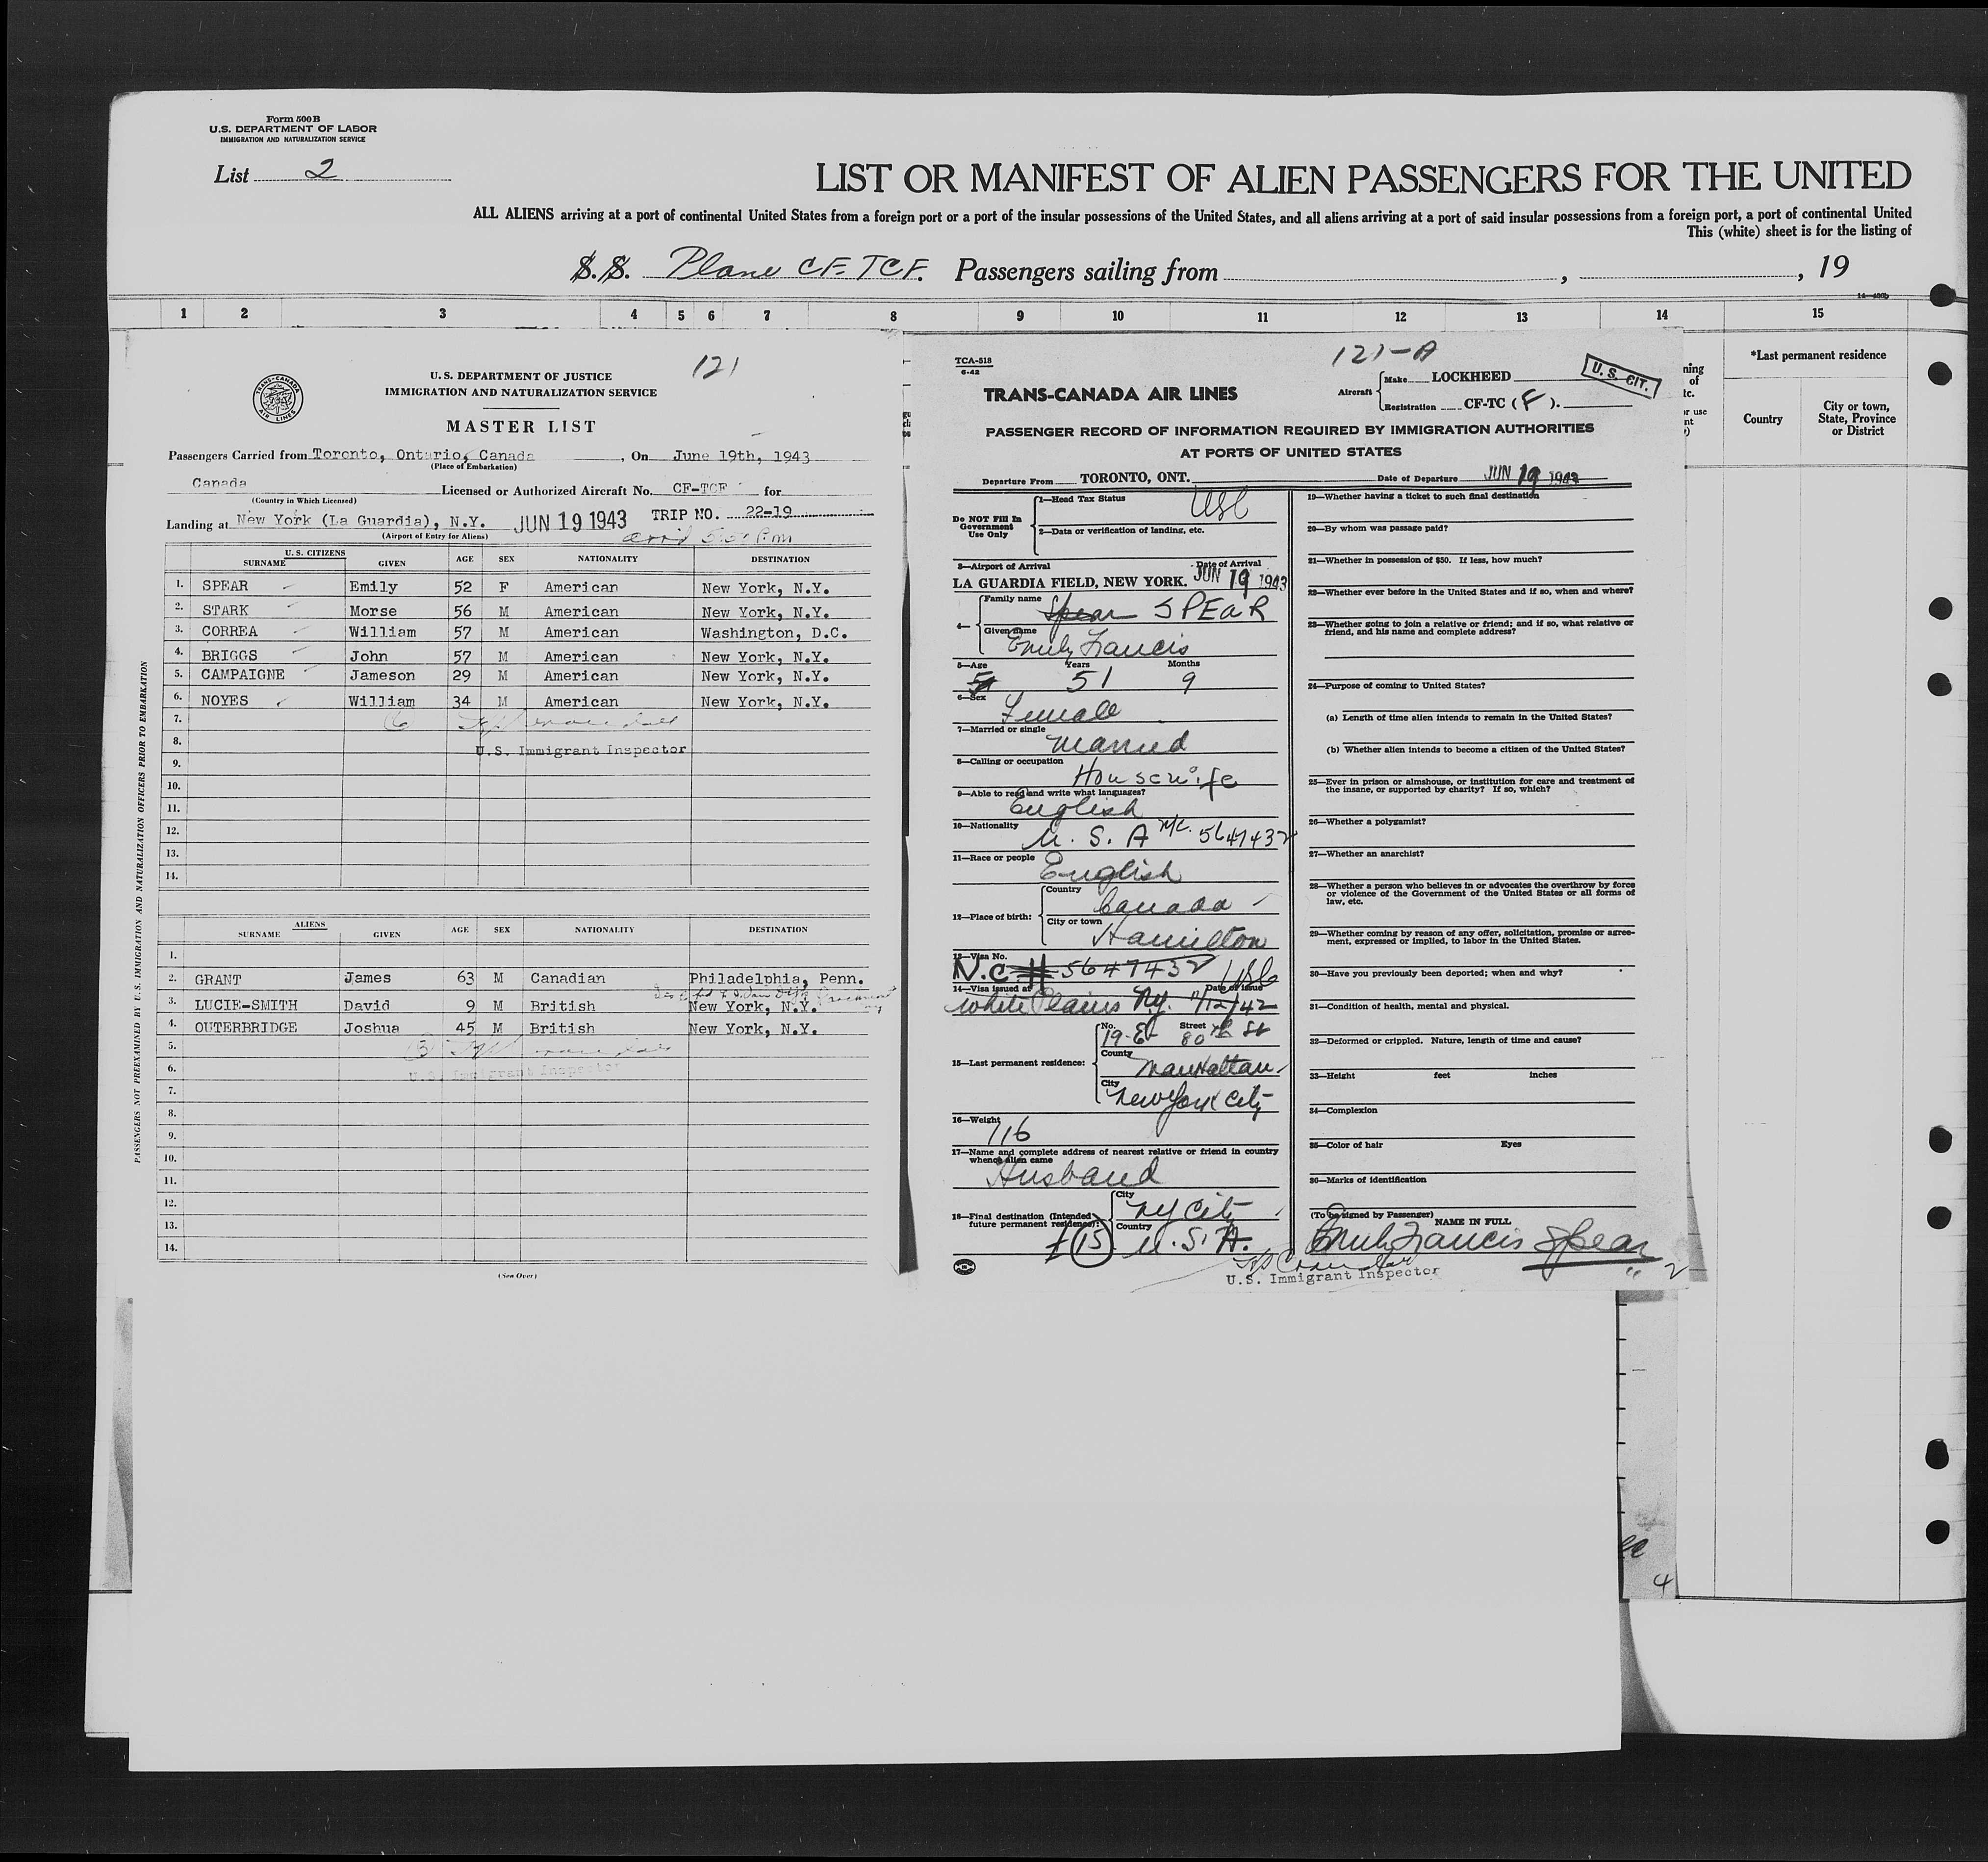 Form 500 B
U.S. DEPARTMENT OF LABOR
IMMIGRATION AND NATURALIZATION SERVICE
List 2
LIST OR MANIFEST OF ALIEN PASSENGERS FOR THE UNITED
ALL ALIENS arriving at a port of continental United States from a foreign port or a port of the insular possessions of the United States, and all aliens arriving at a port of said insular possessions from a foreign port, a port of continental United
This (white) sheet is for the listing of
S.S. Plane CF-TCF. Passengers sailing from , , 19
1 2 3 4 5 6 7 8 9 10 11 12 13 14 15
*Last permanent residence
Country
City or town, State, Province or District
121
TRANS-CANADA AIR LINES
U.S. DEPARTMENT OF JUSTICE
IMMIGRATION AND NATURALIZATION SERVICE
MASTER LIST
Passengers Carried from Toronto, Ontario, Canada, On June 19th, 1943
(Place of Embarkation)
Canada Licensed or Authorized Aircraft No. CF-TCF for
(Country in Which Licensed)
Landing at New York (La Guardia), N.Y. JUN 19 1943 TRIP NO. 22-19
(Airport of Entry for Aliens)
U.S. CITIZENS
SURNAME GIVEN AGE SEX NATIONALITY DESTINATION
1. SPEAR Emily 52 F American New York, N.Y.
2. STARK Morse 56 M American New York, N.Y.
3. CORREA William 57 M American Washington, D.C.
4. BRIGGS John 57 M American New York, N.Y.
5. CAMPAIGNE Jameson 29 M American New York, N.Y.
6. NOYES William 34 M American New York, N.Y.
7. 6
8. U.S. Immigrant Inspector
9.
10.
11.
12.
13.
14.
ALIENS
SURNAME GIVEN AGE SEX NATIONALITY DESTINATION
1.
2. GRANT James 63 M Canadian Philadelphia, Penn.
3. LUCIE-SMITH David 9 M British New York, N.Y.
4. OUTERBRIDGE Joshua 45 M British New York, N.Y.
5. 3
6. U.S. Immigrant Inspector
7.
8.
9.
10.
11.
12.
13.
14.
(See Over)
PASSENGERS NOT PREEXAMINED BY U.S. IMMIGRATION AND NATURALIZATION OFFICERS PRIOR TO EMBARKATION
TCA-518
6-42
121-A
U.S. CIT.
TRANS-CANADA AIR LINES
Aircraft Make LOCKHEED
Registration CF-TC (F).
PASSENGER RECORD OF INFORMATION REQUIRED BY IMMIGRATION AUTHORITIES
AT PORTS OF UNITED STATES
Departure From TORONTO, ONT. Date of Departure JUN 19 1943
Do NOT Fill In Government Use Only
1—Head Tax Status USC
2—Data or verification of landing, etc.
3—Airport of Arrival Date of Arrival
LA GUARDIA FIELD, NEW YORK. JUN 19 1943
4— Family name Spear SPEAR
Given name Emily Francis
5—Age Years 51 Months 9
6—Sex Female
7—Married or single Married
8—Calling or occupation Housewife
9—Able to read and write what languages?
English
10—Nationality U.S.A N/C. 5647432
11—Race or people English
12—Place of birth: Country Canada
City or town Hamilton
13—Visa No.
N.C # 5647432 USC
14—Visa issued at Date of issue
White Plains N.Y. 11/12/42
15—Last permanent residence: No. 19-E- Street 80th St
County Manhattan
City New York City
16—Weight 116
17—Name and complete address of nearest relative or friend in country whence alien came
Husband
18—Final destination (Intended future permanent residence): City NY City
Country U.S.A.
15
19—Whether having a ticket to such final destination
20—By whom was passage paid?
21—Whether in possession of $50. If less, how much?
22—Whether ever before in the United States and if so, when and where?
23—Whether going to join a relative or friend; and if so, what relative or friend, and his name and complete address?
24—Purpose of coming to United States?
(a) Length of time alien intends to remain in the United States?
(b) Whether alien intends to become a citizen of the United States?
25—Ever in prison or almshouse, or institution for care and treatment of the insane, or supported by charity? If so, which?
26—Whether a polygamist?
27—Whether an anarchist?
28—Whether a person who believes in or advocates the overthrow by force or violence of the Government of the United States or all forms of law, etc.
29—Whether coming by reason of any offer, solicitation, promise or agreement, expressed or implied, to labor in the United States.
30—Have you previously been deported; when and why?
31—Condition of health, mental and physical.
32—Deformed or crippled. Nature, length of time and cause?
33—Height feet inches
34—Complexion
35—Color of hair Eyes
36—Marks of identification
(To be signed by Passenger)
NAME IN FULL
Emily Francis Spear
U.S. Immigrant Inspector
4